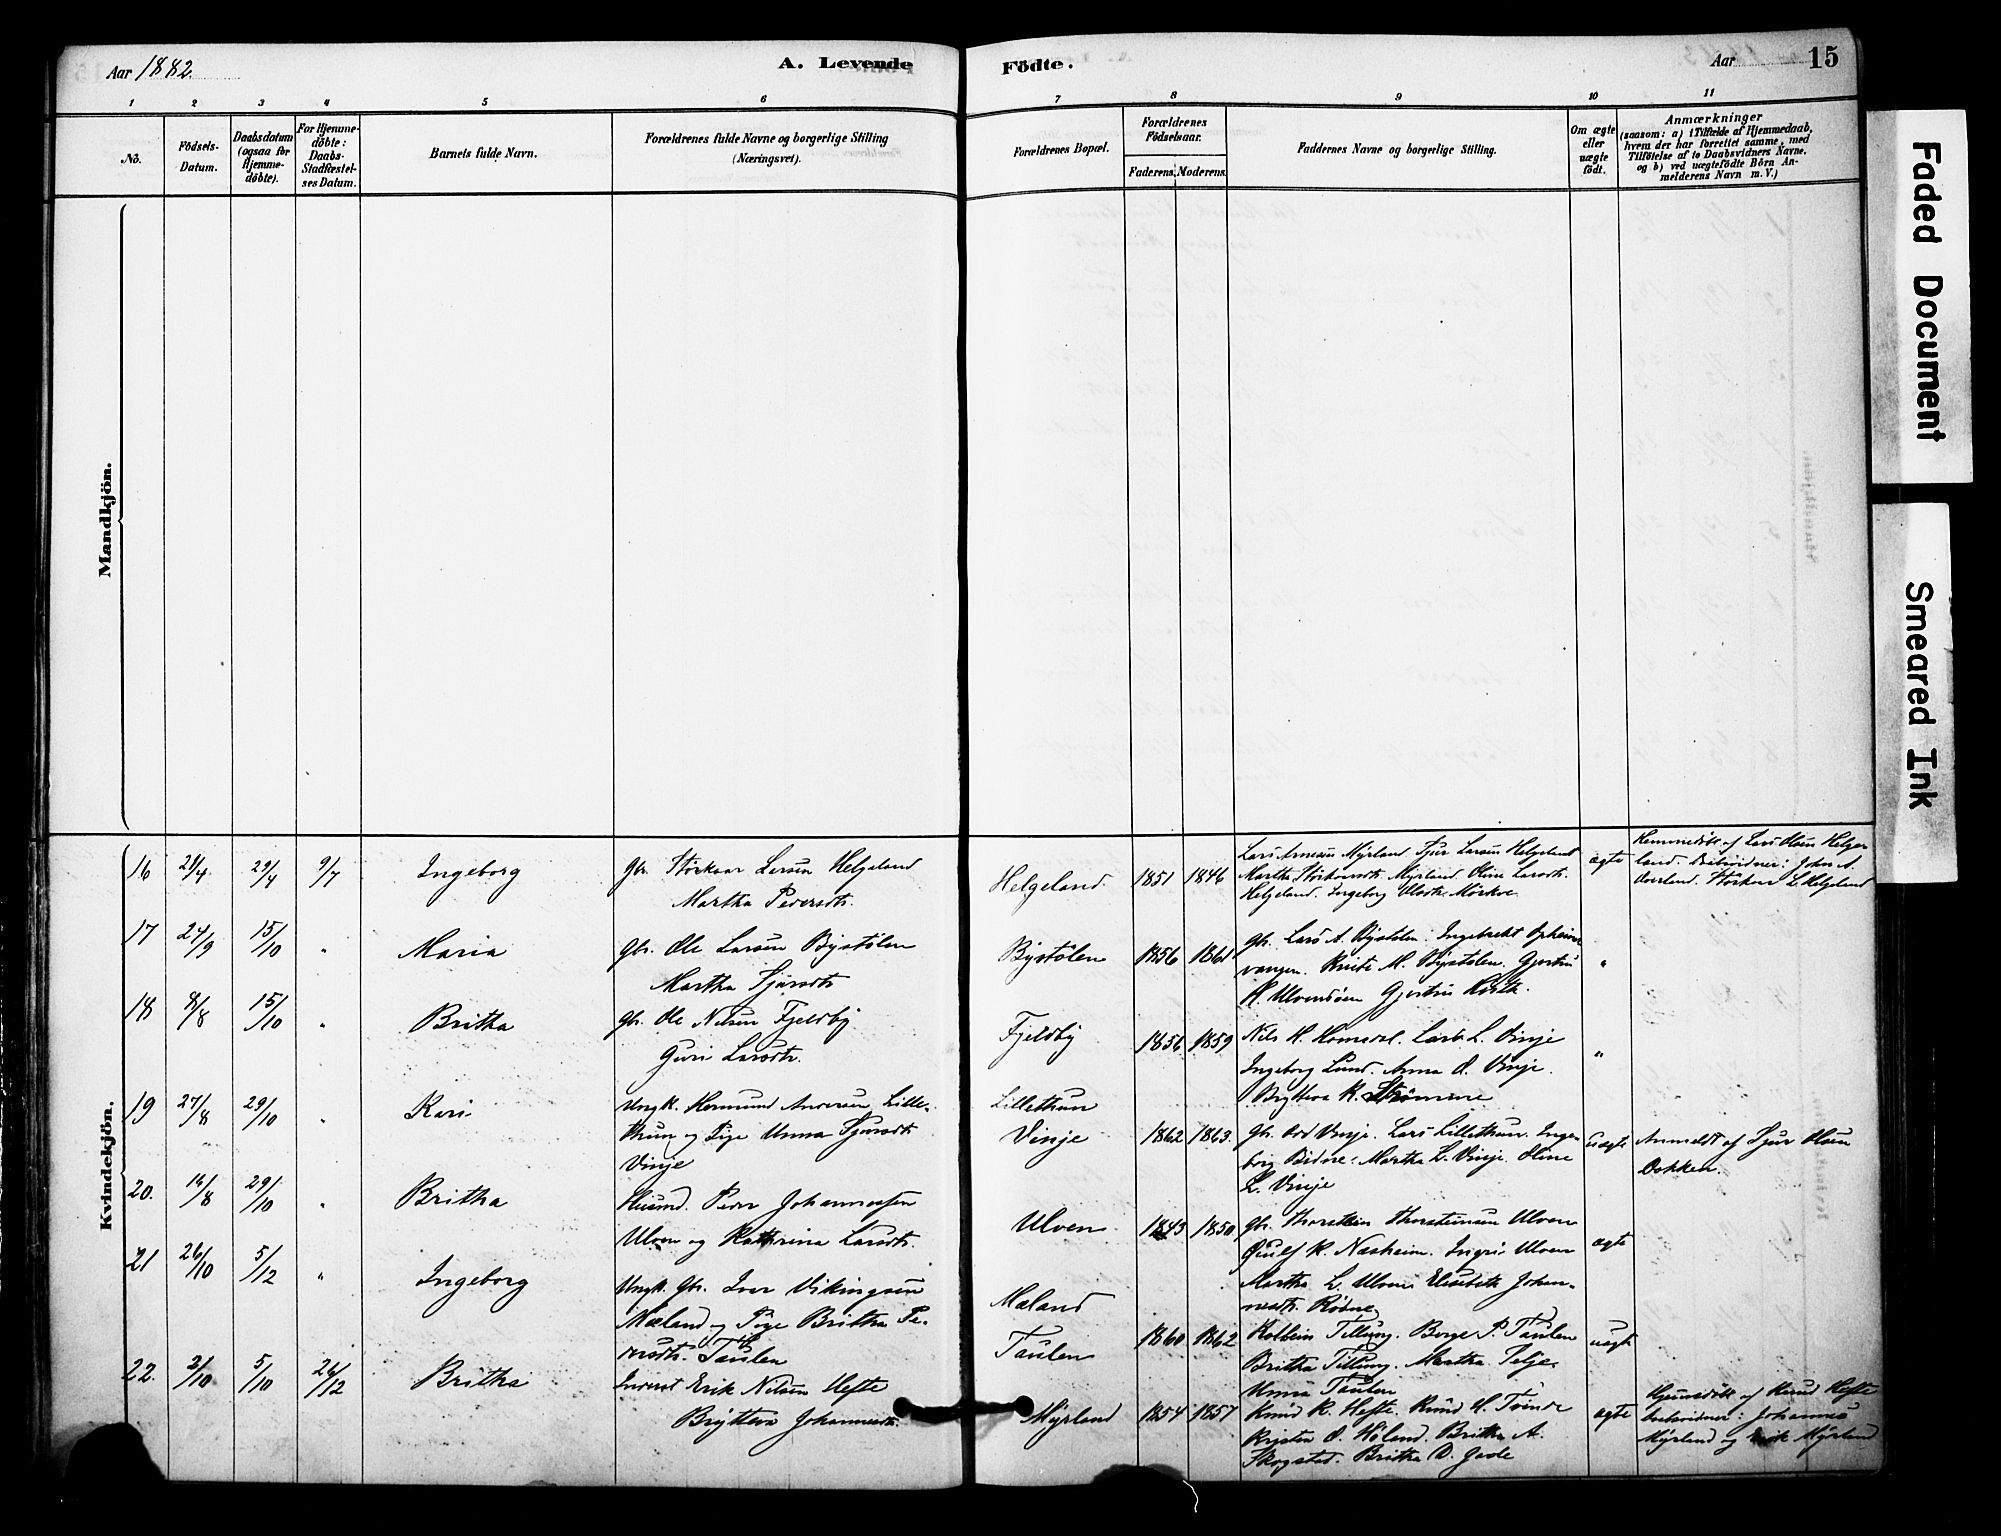 Aar 1882.
A. Levende
Födte.
Aar
15
1 2 3 4 5 6 7 8 9 10 11
No.
Födsels-
Datum.
Daabsdatum
(ogsaa for
Hjemme-
döbte).
For Hjemme-
döbte:
Daabs-
Stadfæstel-
ses Datum.
Barnets fulde Navn.
Forældrenes fulde Navne og borgerlige Stilling
(Næringsvei).
Forældrenes Bopæl.
Forældrenes
Födselsaar.
Faderens. Moderens.
Faddernes Navne og borgerlige Stilling.
Om ægte
eller
uægte
födt.
Anmærkninger
(saasom: a) i Tilfælde af Hjemmedaab,
hvem der har forrettet samme, med
Tilföielse af to Daabsvidners Navne.
og b) ved uægtefödte Börn An-
melderens Navn m. V.)
Mandkjön.
Kvindekjön.
16 21/4 29/4 9/7 Ingeborg
Gbr. Störkaar Larsen Helgeland
Martha Pedersdtr.
Helgeland. 1851 1846
Lars Arnesen Myrland Sjur Larsen Helgeland
Martha Störkaarsdtr. Myrland Oline Larsdtr.
Helgeland. Ingeborg Mörkve
ægte
Hjemmedöbt af Lars Olsen Helge
land. Daabsvidner: John A.
Störkaar L. Helgeland
17 24/9 15/10 " Maria
Gbr. Ole Larsen Bystölen
Martha Sjursdtr.
Bystölen 1856 1861
Gbr. Lars A. Bystölen. Ingebrekt Opheims
vangen. M. Bystölen. Gjertru
H. Gjertru
"
18 8/8 15/10 " Britha
Gbr. Ole Nilsen Fjeldby
Guri Larsdtr.
Fjeldby 1856 1859
Nils H. Lars L. Vinje
Ingeborg Lund. Anna O. Vinje.
Bryteva K.
"
19 27/8 29/10 " Kari
Ungk. Hermund Andersen Lille-
thun og Pige Unna Sjursdtr.
Vinje
Lillethun
Vinje 1862 1863.
Gbr. Odd Vinje. Lars Lillethun. Inge-
borg Bidne. Martha L. Vinje. Oline
L. Vinje
uægte
Anmeldt af Sjur Olsen
Dokken.
20. 16/8 29/10 " Britha
Husmd. Peder Johannessen
Ulven og Kathrina Larsdtr.
Ulven 1843 1850
Gbr. Thorstein Thorsteinsen Ulven
K. Næsheim. Ingri Ulven
Martha L. Ulven Elisabeth Johan-
nesdtr.
ægte
21 26/10 5/12 " Ingeborg
Ungk. Gbr. Iver Vikingsen
Mæland og Pige Britha Pe-
dersdtr. Taulen
Mæland
Taulen 1860 1862
Kolbein Tillung. Borge P. Taulen
Britha Tillung. Martha
Unna Taulen
uægte
22. 3/10 5/10 26/12 Britha
Inderst Erik Nilsen Hefte
Bryteva Johannesdtr.
Myrland 1854 1857
Knud K. Hefte. Knud H. Tvinde
Kristen O. Britha A.
Skogstad. Britha D. Gjode
ægte
Hjemmedöbt af Knud Hefte
Daabsvidner: Johannes
Myrland og Erik Myrland
Faded Document
Smeared Ink